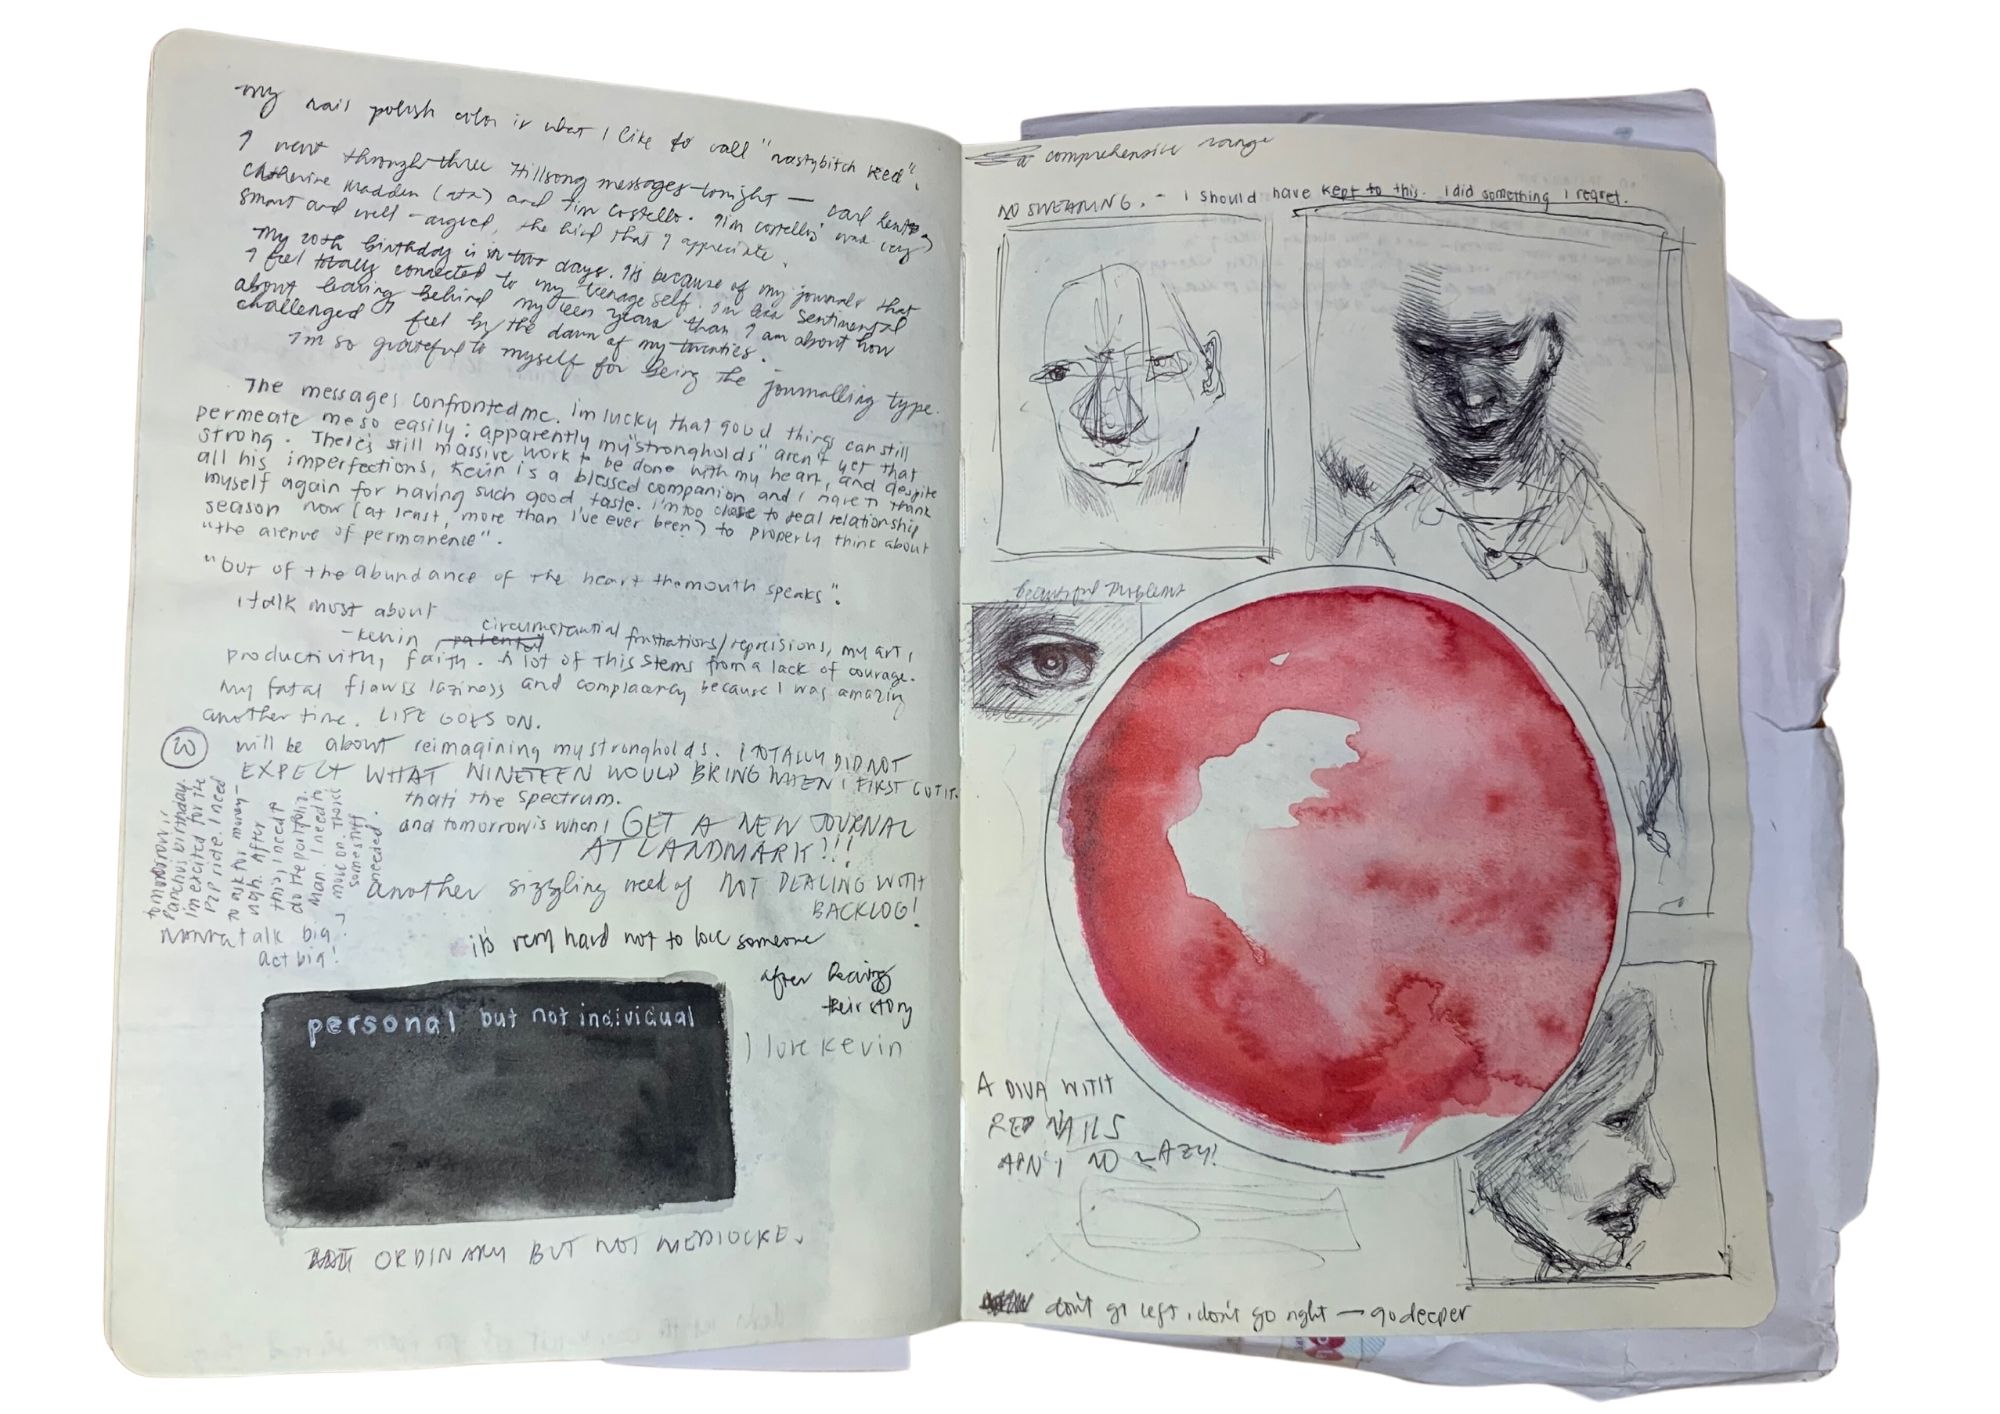 my nail polish color is what I like to call "nastybitch red".
I went through three Hillsong messages tonight — Carl Lentz,
Catherine Madden (ata) and Tim Costello. Tim Costello's was very
smart and well-argued, the kind that I appreciate.
My 20th birthday is in two days. It's because of my journals that
I feel totally connected to my teenage self. I'm less sentimental
about leaving behind my teen years than I am about how
challenged I feel by the dawn of my twenties.
I'm so grateful to myself for being the journalling type.
The messages confronted me. I'm lucky that good things can still
permeate me so easily: apparently my "strongholds" aren't yet that
strong. There's still massive work to be done with my heart, and despite
all his imperfections, Kevin is a blessed companion and I have to thank
myself again for having such good taste. I'm too close to real relationship
season now (at least, more than I've ever been) to properly think about
"the avenue of permanence".
"out of the abundance of the heart the mouth speaks".
I talk most about
-Kevin, circumstantial frustrations/repressions, my art,
productivity, faith. A lot of this stems from a lack of courage.
My fatal flaw is laziness and complacency because I was amazing
another time. LIFE GOES ON.
20 will be about reimagining my strongholds. I TOTALLY DID NOT
EXPECT WHAT NINETEEN WOULD BRING WHEN I FIRST GOT IT.
that's the spectrum.
and tomorrow is when I GET A NEW JOURNAL
AT LANDMARK!!!
another sizzling need of NOT DEALING WITH
BACKLOG!
tomorrow is
Panchus birthday.
I'm excited for the
ride. I need
to ask for money-
ugh. After
this, I need to
do the portfolio.
Man. I need to
move on. Throw
some stuff
needed.
talk big
act big!
it's very hard not to love someone
after hearing
their story
I love Kevin
personal but not individual
ORDINARY BUT NOT MEDIOCRE.
a comprehensive range
NO SWEARING. - I should have kept to this. I did something I regret.
beautiful problems
A DIVA WITH
RED NAILS
AIN'T NO LAZY!
don't go left, don't go right — go deeper